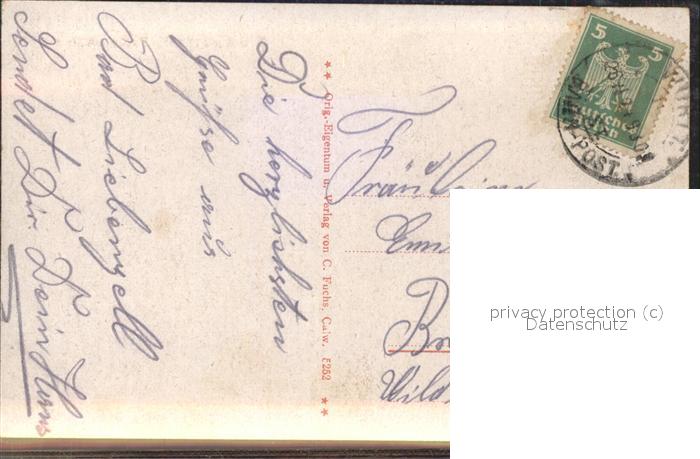 Die herzlichsten
Grüße aus
Bad Liebenzell
sendet Dir Dein Hans
★★ Orig.-Eigentum u. Verlag von C. Fuchs, Calw. 5252 ★★
Fräulein
5 5
POST
privacy protection (c)
Datenschutz